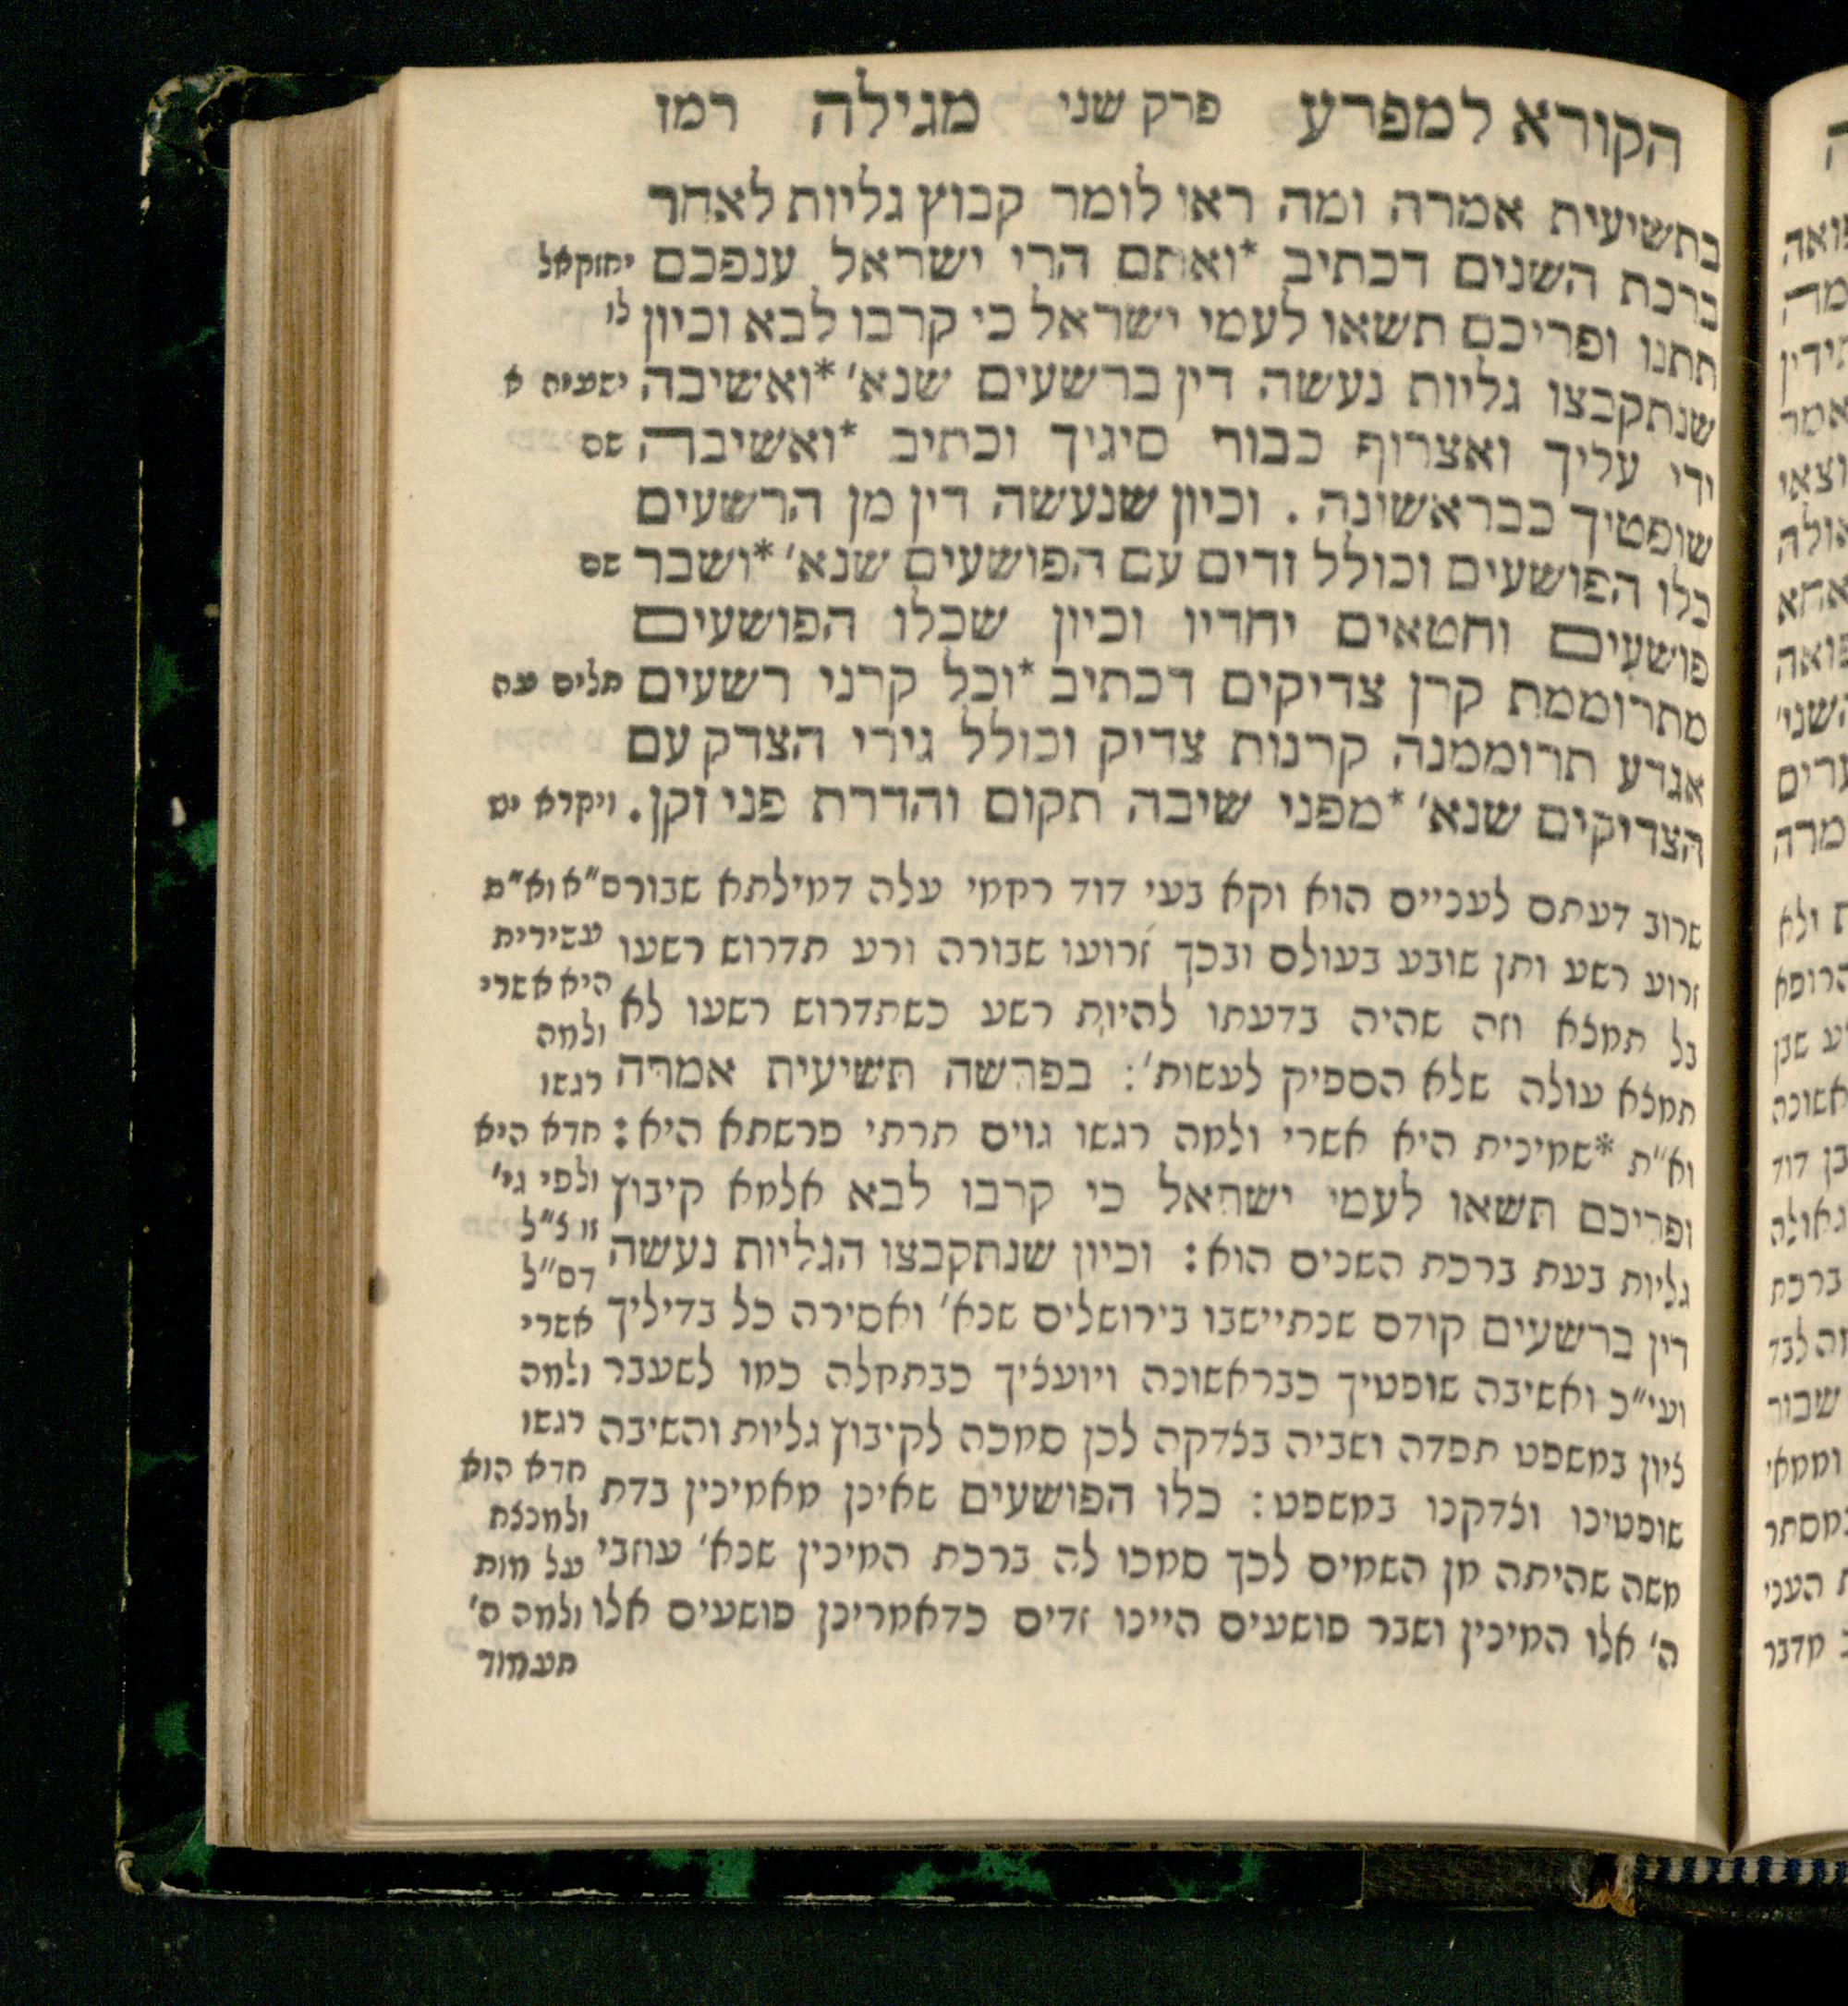 הקורא למפרע פרק שני מגילה רמז
בתשיעית אמרה ומה ראו לומר קבוץ גליות לאחר
ברכת השנים דכתיב *ואתם הרי ישראל ענפכם יחזקאל
תתנו ופריכם תשאו לעמי ישראל כי קרבו לבא וכיון לו
שנתקבצו גליות נעשה דין ברשעים שנא' *ואשיבה ישעיה א
ידי עליך ואצרוף כבור סיגיך וכתיב *ואשיבה שם
שופטיך כבראשונה. וכיון שנעשה דין מן הרשעים
כלו הפושעים וכולל זדים עם הפושעים שנא' *ושבר שם
פושעים וחטאים יחדיו וכיון שכלו הפושעים
מתרוממת קרן צדיקים דכתיב *וכל קרני רשעים תלים עה
אגדע תרוממנה קרנות צדיק וכולל גירי הצדק עם
הצדיקים שנא' *מפני שיבה תקום והדרת פני זקן. ויקרא יט
שרוב דעתם לעניים הוא וקא בעי דוד רחמי עלה דמילתא שבור
זרוע רשע ותן שובע בעולם ובכך זרועו שבורה ורע תדרוש רשעו
בל תמצא וזה שהיה בדעתו להיות רשע כשתדרוש רשעו לא
תמצא עולה שלא הספיק לעשות': בפרשה תשיעית אמרה
וא"ת *שמינית היא אשרי ולמה רגשו גוים תרתי פרשתא היא:
ופריכם תשאו לעמי ישראל כי קרבו לבא אלמא קיבוץ
גליות בעת ברכת השנים הוא: וכיון שנתקבצו הגליות נעשה
דין ברשעים קודם שנתיישבו בירושלים שנא' ואסירה כל בדיליך
ועי"כ ואשיבה שופטיך כבראשונה ויועציך כבתחלה כמו לשעבר
ציון במשפט תפדה ושביה בצדקה לכן סמכה לקיבוץ גליות והשיבה
שופטינו וצדקנו במשפט: כלו הפושעים שאינן מאמינין בדת
משה שהיתה מן השמים לכך סמכו לה ברכת המינין שנא' עוזבי
ה' אלו המינין ושבר פושעים היינו זדים כדאמרינן פושעים אלו
ס"א וא"ת
עשירית
היא אשרי
ולמה
רגשו
חדא היא
ולפי גי'
זו צ"ל
דס"ל
אשרי
ולמה
רגשו
חדא הוא
ולמנצח
על מות
ולמה ה'
תעמוד